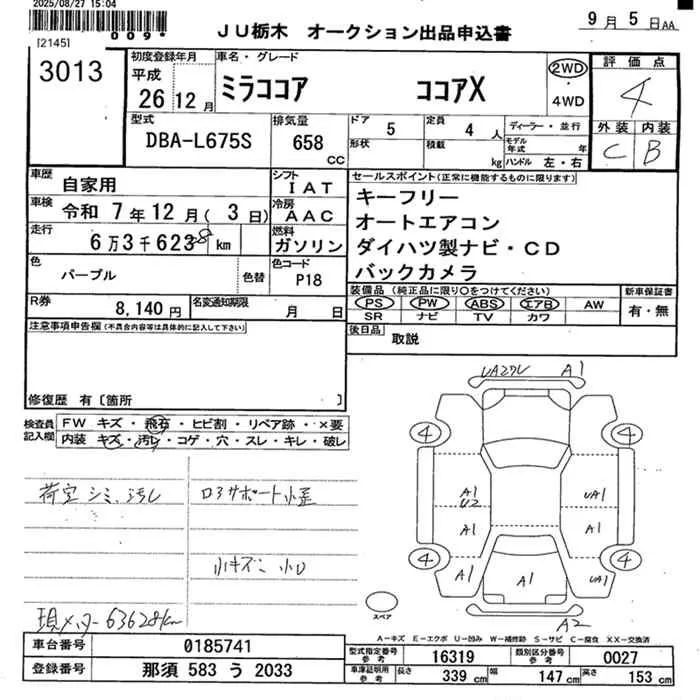 2025/08/27 15:04
009*
[2145]
JU栃木 オークション出品申込書
9月 5日AA
3013
初度登録年月
平成
26年12月
車名・グレード
ミラココア ココアX
2WD
・
4WD
評価点
4
外装 内装
C B
型式
DBA-L675S
排気量
658
CC
ドア
5
形状
定員
4人
積載
kg
ディーラー・並行
モデル年式 年
ハンドル 左・右
車歴
自家用
シフト
IAT
セールスポイント(正常に機能するものに限ります)
キーフリー
オートエアコン
ダイハツ製ナビ・CD
バックカメラ
車検
令和 7年12月( 3日)
冷房
AAC
走行
6万3千6238km
燃料
ガソリン
色
パープル
色替
色コード
P18
装備品(純正品に限り○をつけてください)
PS PW ABS エアB AW
SR ナビ TV カワ
新車保証書
有・無
R券
8,140円
名変通知期限
月 日
後日品
取説
注意事項申告欄(不具合内容等は具体的に記入して下さい)
修復歴 有〔箇所 〕
検査員記入欄
FW キズ・飛石・ヒビ割・リペア跡・×要
内装・キズ・汚れ・コゲ・穴・スレ・キレ・破レ
荷室シミ、汚れ
コアサポート小歪
小キズ、小凹
現メーター63628km
A1
4
4
A1
U2
UA1
A1
A1
4
4
A1
A1
UA1
A2
スペア
A-キズ E-エクボ U-凹み W-補修跡 S-サビ C-腐食 XX-交換済
車台番号
0185741
型式指定番号
参考
16319
類別区分番号
参考
0027
登録番号
那須 583 う 2033
車庫証明用
参考
長さ
339cm
幅
147cm
高さ
153cm